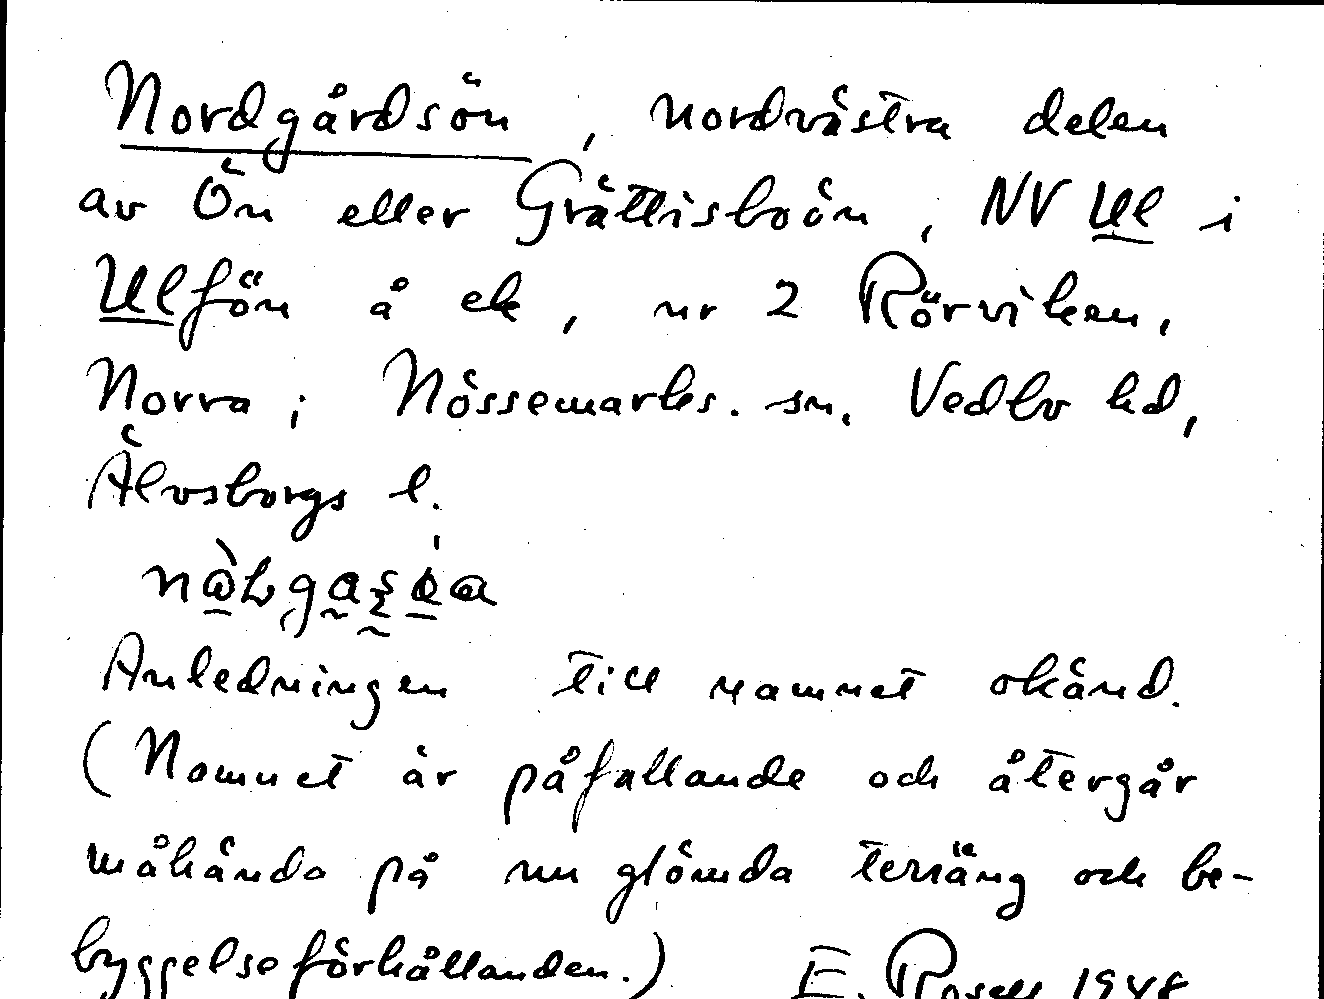 Nordgårdsön, nordvästra delen
av Ön eller Grättisboön, NV Ul i
Ulfön å ek, nr 2 Rörviken,
Norra; Nössemarks. sn. Vedbo hd,
Älvsborgs l.
Anledningen till namnet okänd.
(Namnet är påfallande och återgår
måhända på nu glömda terräng och be-
byggelseförhållanden.) E. Rosell 1948